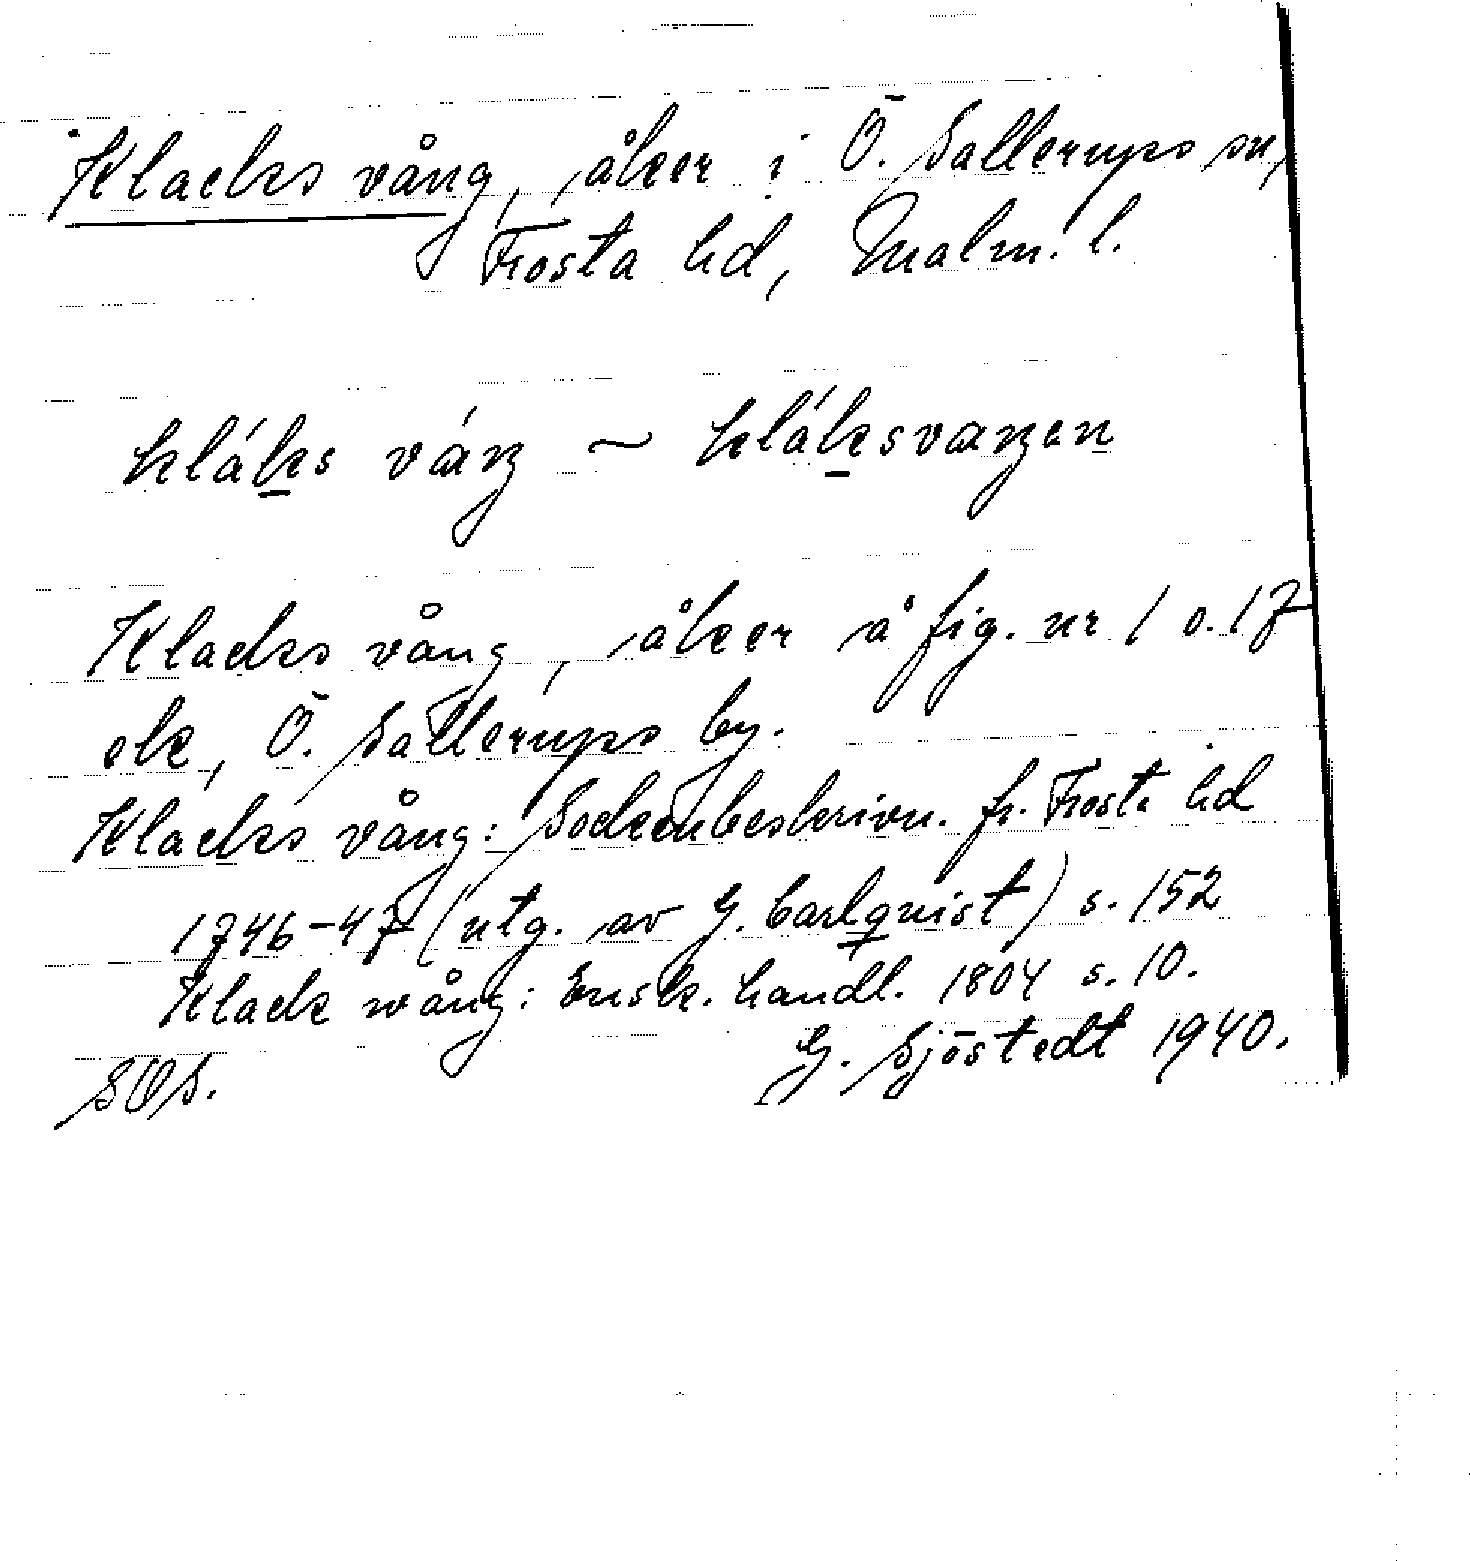 Klacks vång, åker i Ö. Sallerups sn,
Frosta hd, Malm. l.
klák̲s váŋ ~ klák̲svaŋən
Klacks vång, åker å fig. nr 1 o. 17
ek, Ö. Sallerups by.
Klacks vång: Sockenbeskrivn. fr. Frosta hd
1746-47 (utg. av G. Carlquist) s. 152
Klack wång: Ensk. handl. 1804 s. 10.
G. Sjöstedt 1940.
SOS.